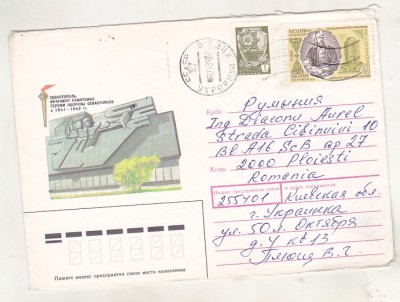 СЕВАСТОПОЛЬ.
ФРАГМЕНТ ПАМЯТНИКА
ГЕРОЯМ ОБОРОНЫ СЕВАСТОПОЛЯ
в 1941–1942 гг.
СССР
УКРАИНКА
НИЗАМИ
Куда
Румыния
Ing Diaconu Aurel
Strada Cibinului 10
Bl A16 ScB ap 27
Кому
2000 Ploiesti
Romania
Индекс предприятия связи и адрес отправителя
255401 Киевская обл.
г. Украинка
ул. 50 л. Октября
д. 4 кв 13
Пишите индекс предприятия связи места назначения